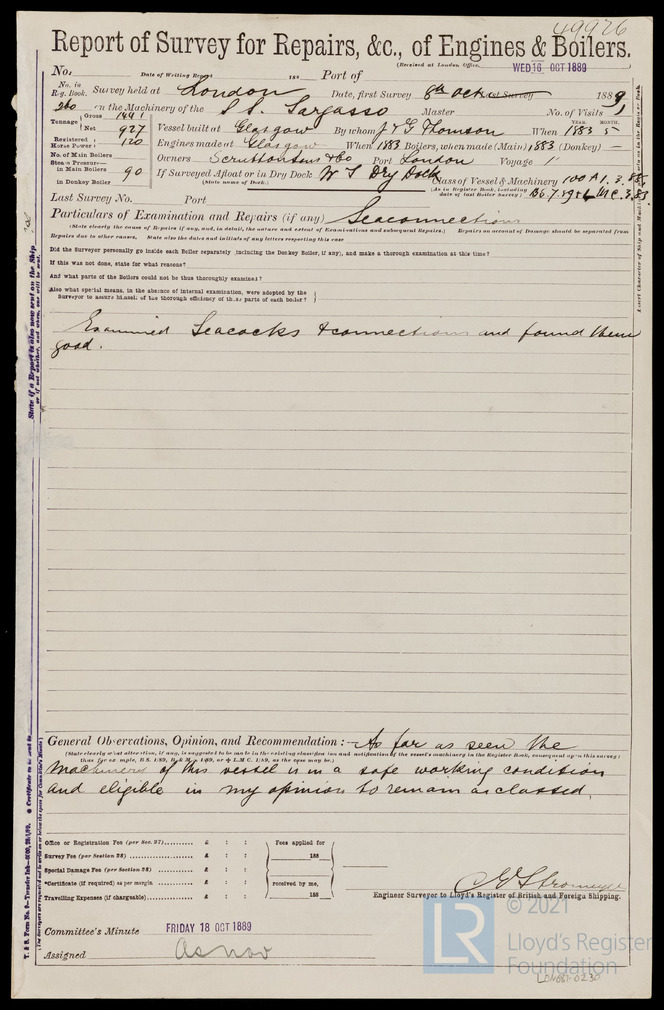 49926
Report of Survey for Repairs, &c., of Engines & Boilers.
(Received at London Office, WED 16 OCT 1889
No. Date of Writing Report 188 Port of
No. in Reg. Book. Survey held at London Date, first Survey 8th Oct Last Survey 1889
260 on the Machinery of the S.S. Sargasso Master No. of Visits 1
Tonnage Gross 1441
Net 927
Vessel built at Glasgow By whom J & G Thomson When YEAR. 1883 MONTH. 5
Registered Horse Power 120 Engines made at Glasgow When 1883 Boilers, when made (Main) 1883 (Donkey) —
No. of Main Boilers
Owners Scruttons & Co Port London Voyage "
Steam Pressure— in Main Boilers 90
in Donkey Boiler
If Surveyed Afloat or in Dry Dock W I Dry Dock
(State name of Dock.)
Class of Vessel & Machinery 100 A1. 3.
(As in Register Book, including date of last Boiler Survey)
Last Survey No. Port
Particulars of Examination and Repairs (if any) Seaconnections
(State clearly the cause of Repairs if any, and, in detail, the nature and extent of Examinations and subsequent Repairs.) Repairs on account of Damage should be separated from
Repairs due to other causes. State also the dates and initials of any letters respecting this case
Did the Surveyor personally go inside each Boiler separately including the Donkey Boiler, if any, and make a thorough examination at this time?
If this was not done, state for what reasons?
And what parts of the Boilers could not be thus thoroughly examined?
Also what special means, in the absence of internal examination, were adopted by the
Surveyor to assure himself of the thorough efficiency of those parts of each boiler?
Examined Seacocks & connections and found them
good.
General Observations, Opinion, and Recommendation :— As far as seen the
(State clearly what alteration, if any, is suggested to be made in the existing classification and notification of the vessel's machinery in the Register Book, consequent upon this survey;
thus for example, B.S. 1/89, B & M.S. 1/89, or L.M.C. 1/89, as the case may be.)
Machinery of this vessel is in a safe working condition
and eligible in my opinion to remain as classed.
Office or Registration Fee (per Sec. 27) £ : :
Survey Fee (per Section 28) £ : :
Special Damage Fee (per Section 28) £ : :
*Certificate (if required) as per margin £ : :
Travelling Expenses (if chargeable) £ : :
Fees applied for
188
received by me,
188
C E Stromeyer
Engineer Surveyor to Lloyd's Register of British and Foreign Shipping.
Committee's Minute FRIDAY 18 OCT 1889
Assigned As now
LR © 2021
Lloyd's Register
Foundation
LON681-0230
State if a Report is also now sent on the Ship
or if not whether, and when, one will be sent.